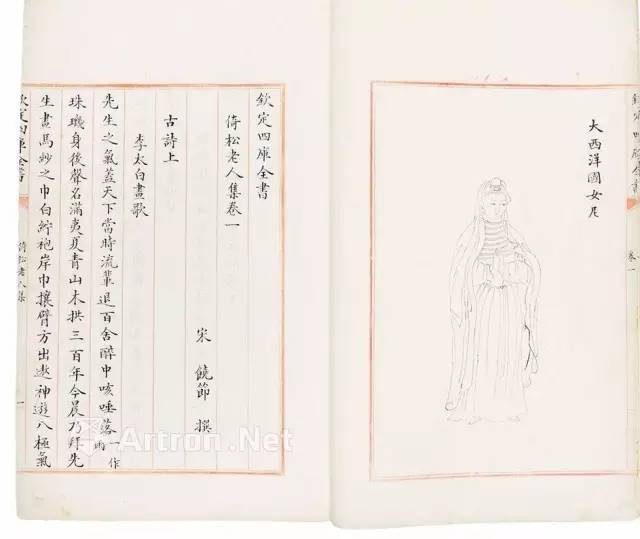 大西洋國女尼
欽定四庫全書
卷一
欽定四庫全書
倚松老人集卷一
宋 饒節 撰
古詩上
李太白畫歌
先生之氣蓋天下當時流輩退百舍醉中咳唾落一作雨
珠璣身後聲名滿夷夏青山木拱三百年今晨乃拜先
生畫烏紗之巾白紵袍岸巾攘臂方出遨神遊八極氣
欽定四庫全書
倚松老人集
一
Artron.Net